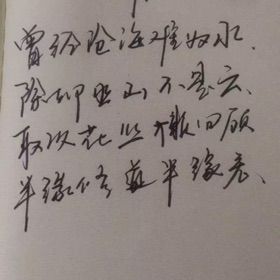 曾经沧海难为水.
除却巫山不是云、
取次花丛懒回顾
半缘修道半缘君、